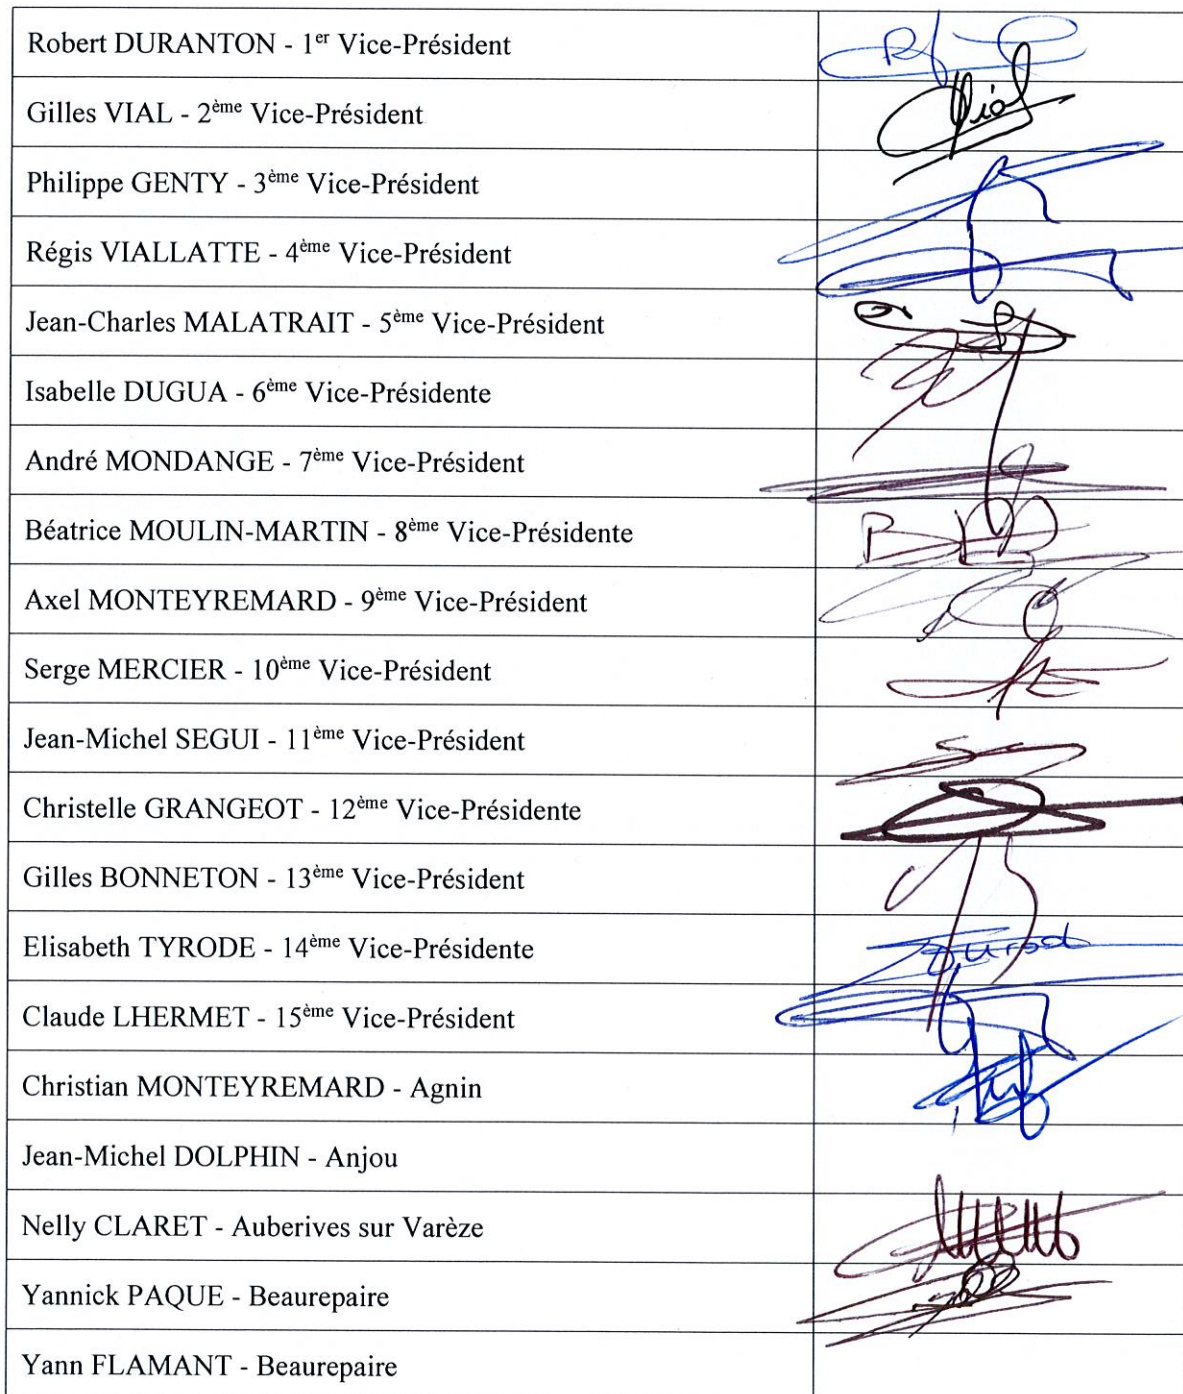 Robert DURANTON - 1er Vice-Président
Gilles VIAL - 2ème Vice-Président
Vial
Philippe GENTY - 3ème Vice-Président
Régis VIALLATTE - 4ème Vice-Président
Jean-Charles MALATRAIT - 5ème Vice-Président
Isabelle DUGUA - 6ème Vice-Présidente
André MONDANGE - 7ème Vice-Président
Béatrice MOULIN-MARTIN - 8ème Vice-Présidente
Axel MONTEYREMARD - 9ème Vice-Président
Serge MERCIER - 10ème Vice-Président
Jean-Michel SEGUI - 11ème Vice-Président
Christelle GRANGEOT - 12ème Vice-Présidente
Gilles BONNETON - 13ème Vice-Président
Elisabeth TYRODE - 14ème Vice-Présidente
Claude LHERMET - 15ème Vice-Président
Christian MONTEYREMARD - Agnin
Jean-Michel DOLPHIN - Anjou
Nelly CLARET - Auberives sur Varèze
Yannick PAQUE - Beaurepaire
Yann FLAMANT - Beaurepaire